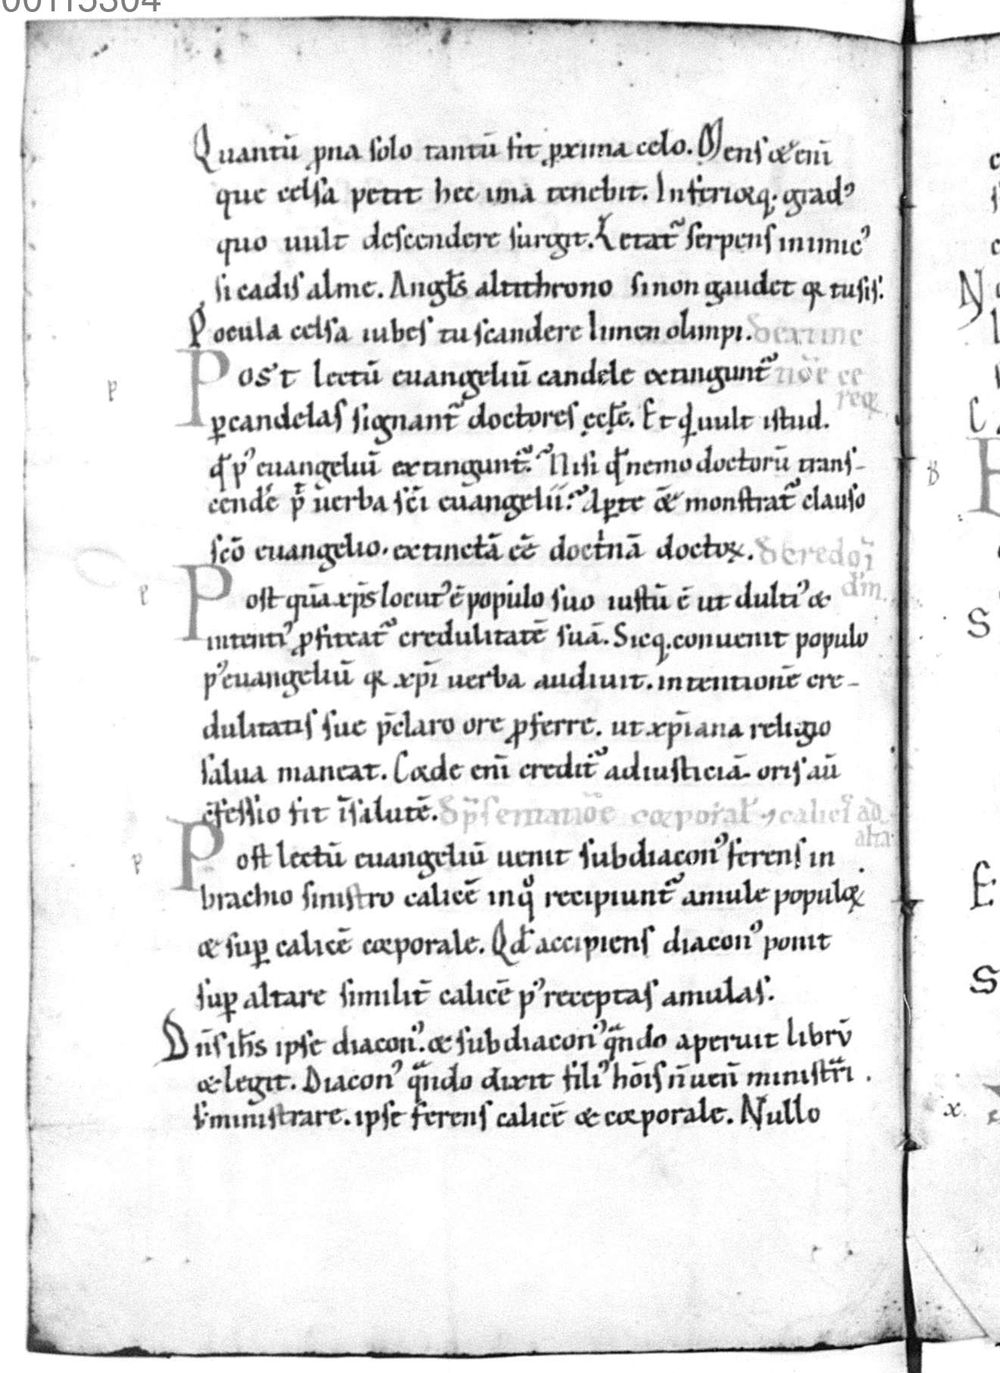 00115304
Quantū p̄na solo tantū sit ꝓxima celo. Mens & eni̅
que celsa petit hec ima tenebit. Inferiorq; gradꝰ
quo uult descendere surgit. Letat᷑ serpens inimicꝰ
si cadis alme. Angls̄ altithrono si non gaudet qꝛ tu sis.
Pocula celsa iubes tu scandere limen olimpi. De extinc
Post lectū euangeliū candele extingunt᷑ tiōe ce
req̣
ꝑ candelas signant᷑ doctores eccłe. Et qď uult istud.
qď pꝰ euangeliū extingunt᷑. Nisi qď nemo doctorū trans-
cendē p̄t uerba sc̄i euangelii. Aꝑte & monstrat᷑ clauso
sc̄o euangelio. extinctā eē doctnā doctoꝝ. De credo ī
dm̄.
Post quā xp̄s locutꝰ ē populo suo iustū ē ut dultiꝰ &
intentiꝰ ꝓfiteat᷑ credulitatē suā. Sicq; conuenit populo
pꝰ euangeliū qꝛ xp̄i uerba audiuit. intentionē cre-
dulitatis sue p̄claro ore ꝓferre. ut xp̄iana religio
salua maneat. Corde eni̅ credit᷑ ad iusticiā. oris aū
cf̄essio fit ī salutē. corporał ⁊ calicis ad
alta
Post lectū euangeliū uenit subdiaconꝰ ferens in
brachio sinistro calicē in qͦ recipiunt᷑ amule populoꝝ
& suꝑ calicē corporale. Qď accipiens diaconꝰ ponit
suꝑ altare similit̄ calicē pꝰ receptas amulas.
Dn̄s ihs̄ ipse diaconꝰ. & subdiaconꝰ qn̄do aperuit librū
& legit. Diaconꝰ qn̄do dixit filiꝰ hōis n̄ ueni̅ ministrari.
s; ministrare. ipse ferens calicē & corporale. Nullo